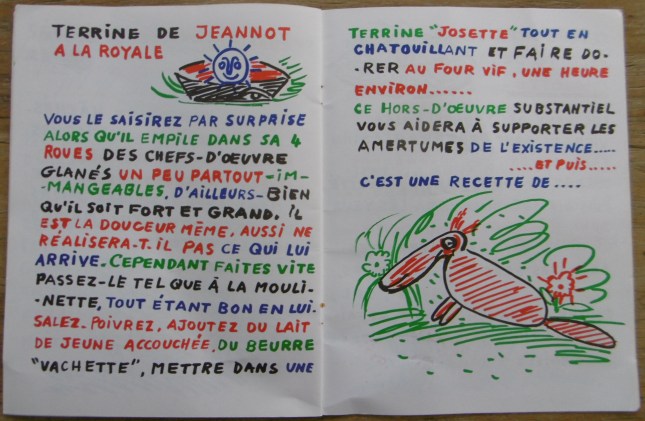 TERRINE DE JEANNOT
A LA ROYALE
VOUS LE SAISIREZ PAR SURPRISE
ALORS QU'IL EMPILE DANS SA 4
ROUES DES CHEFS-D'OEUVRE
GLANÉS UN PEU PARTOUT-IM-
-MANGEABLES, D'AILLEURS-BIEN
QU'IL SOIT FORT ET GRAND. IL
EST LA DOUCEUR MÊME, AUSSI NE
RÉALISERA-T-IL PAS CE QUI LUI
ARRIVE. CEPENDANT FAITES VITE
PASSEZ-LE TEL QUE À LA MOULI-
-NETTE, TOUT ÉTANT BON EN LUI.
SALEZ. POIVREZ, AJOUTEZ DU LAIT
DE JEUNE ACCOUCHÉE, DU BEURRE
"VACHETTE", METTRE DANS UNE
TERRINE "JOSETTE" TOUT EN
CHATOUILLANT ET FAIRE DO-
-RER AU FOUR VIF, UNE HEURE
ENVIRON......
CE HORS-D'OEUVRE SUBSTANTIEL
VOUS AIDERA À SUPPORTER LES
AMERTUMES DE L'EXISTENCE.....
....ET PUIS.....
C'EST UNE RECETTE DE....